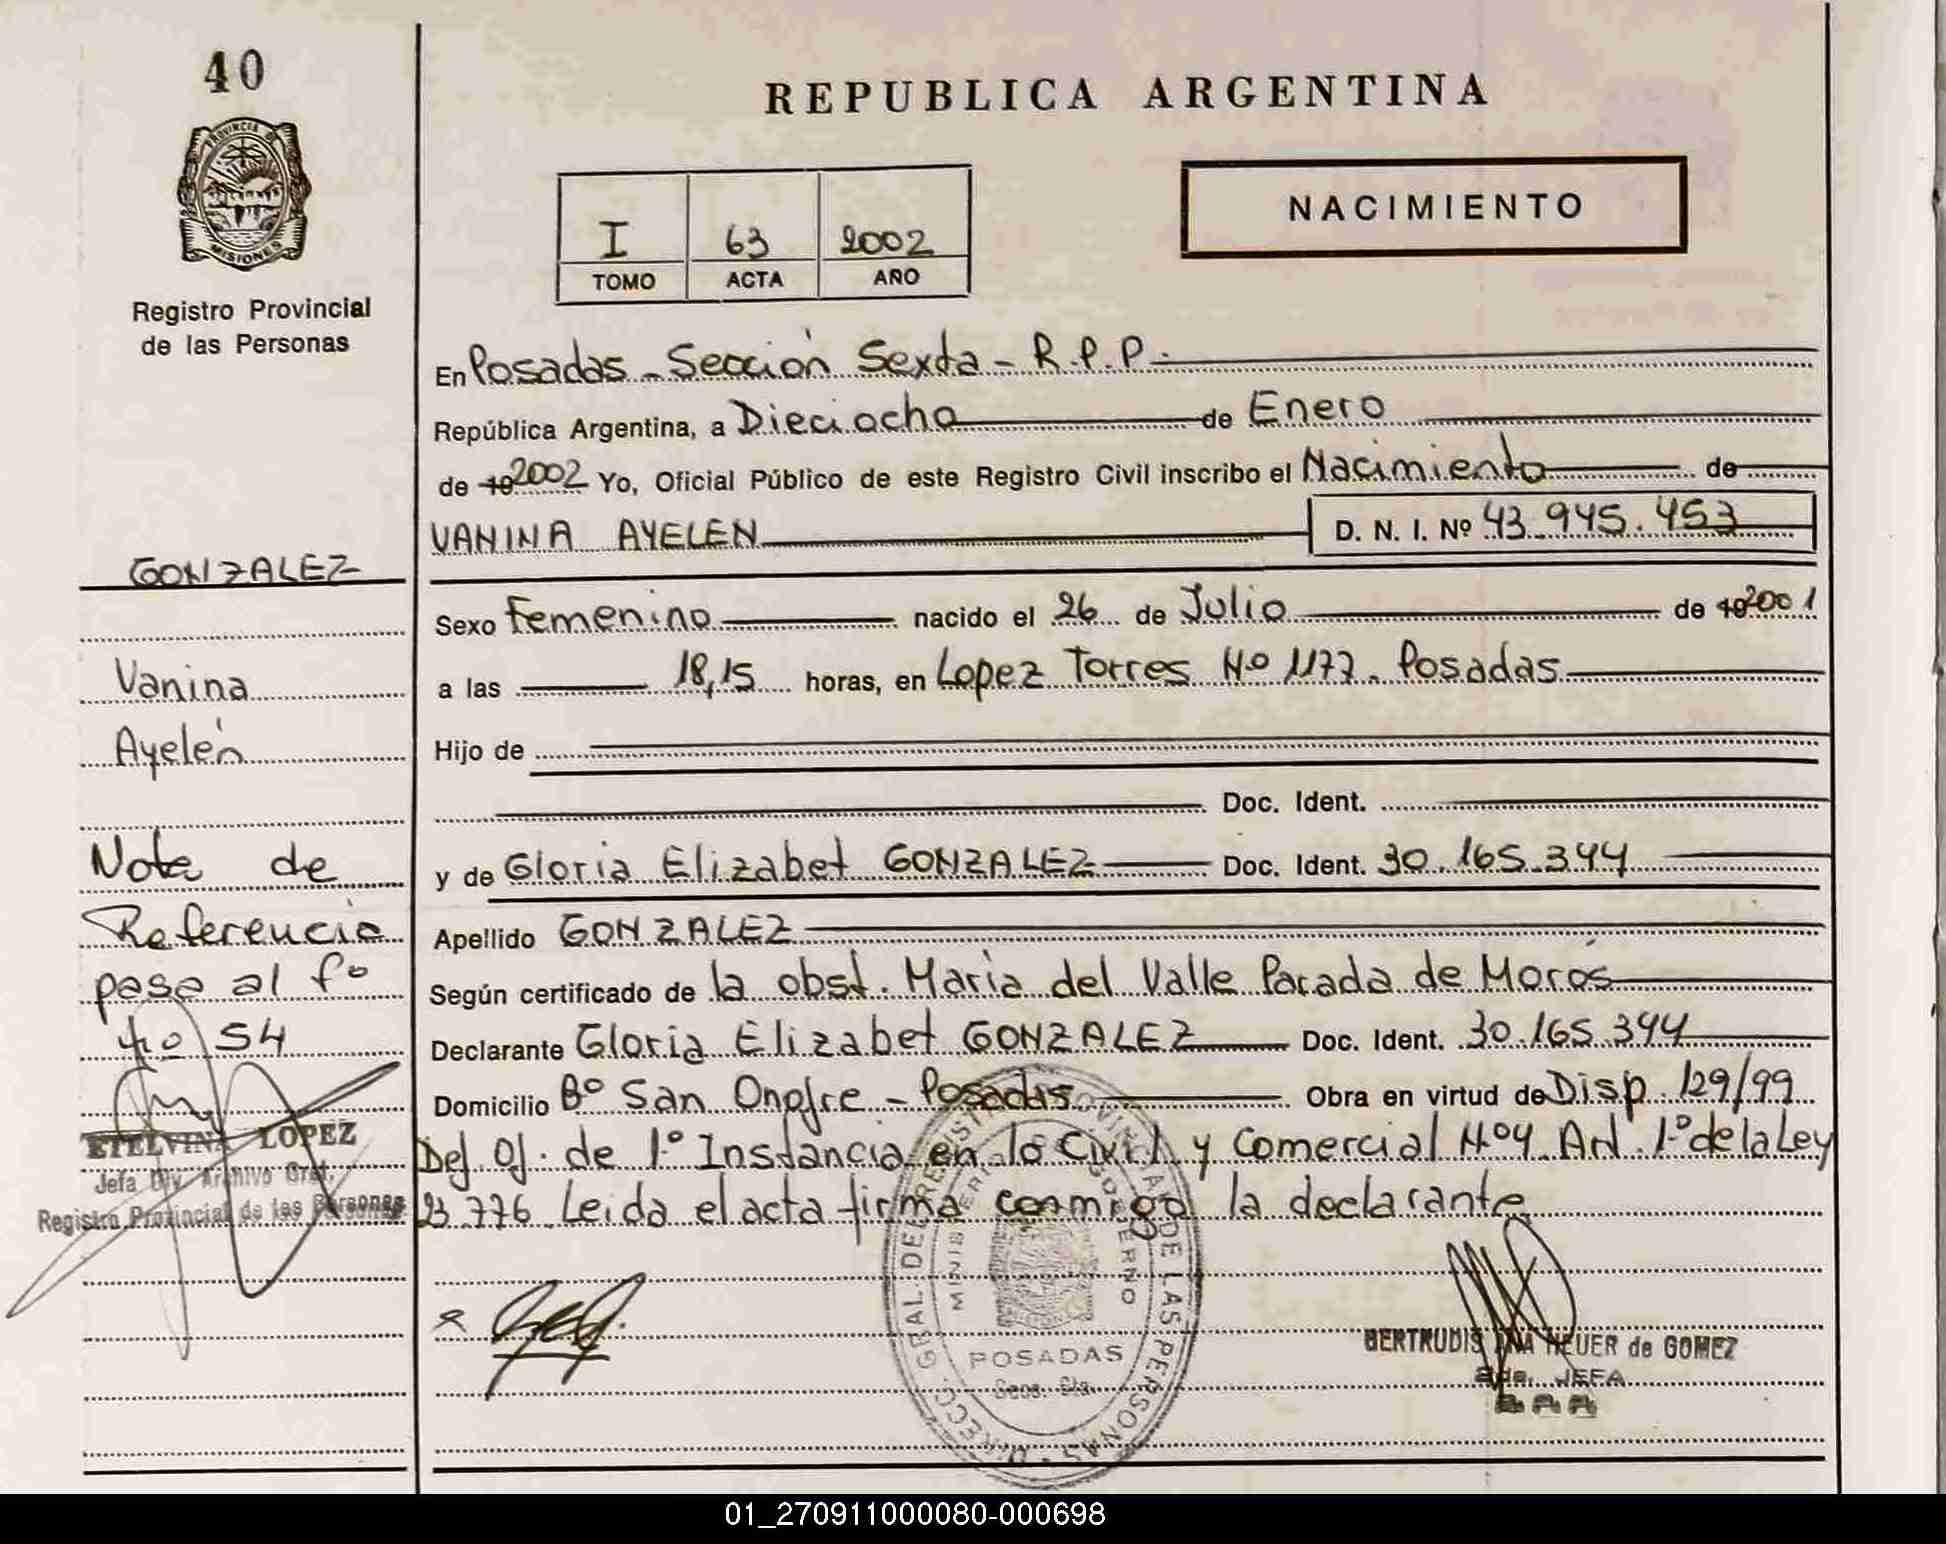 40
PROVINCIA DE
MISIONES
Registro Provincial
de las Personas
REPUBLICA ARGENTINA
I 63 2002
TOMO ACTA AÑO
NACIMIENTO
En Posadas - Sección Sexta - R.P.P.
República Argentina, a Dieciocho de Enero
de 19 2002 Yo, Oficial Público de este Registro Civil inscribo el Nacimiento de
VANINA AYELEN D. N. I. Nº 43.945.453
GONZALEZ
Sexo Femenino nacido el 26 de Julio de 19 2001
Vanina
a las 18,15 horas, en Lopez Torres Nº 1177. Posadas
Ayelén
Hijo de
Doc. Ident.
Nota de
y de Gloria Elizabet GONZALEZ Doc. Ident. 30.165.344
Referencia
Apellido GONZALEZ
pasa al fº
Según certificado de la obst. Maria del Valle Parada de Moros
Nº 54
Declarante Gloria Elizabet GONZALEZ Doc. Ident. 30.165.344
Domicilio Bº San Onofre - Posadas Obra en virtud de Disp. 129/99
ETELVINA LOPEZ
Jefa Div. Archivo Gral.
Registro Provincial de las Personas
Def. Of. de 1º Instancia en lo Civil y Comercial Nº 4. Art. 1º de la Ley
23.776. Leida el acta firma conmigo la declarante
DIRECC. GRAL. DEL REGISTRO PROVINCIAL DE LAS PERSONAS
MINISTERIO GOBIERNO
POSADAS
Secc. 6ta.
GERTRUDIS ANA HEUER de GOMEZ
2da. JEFA
01_270911000080-000698